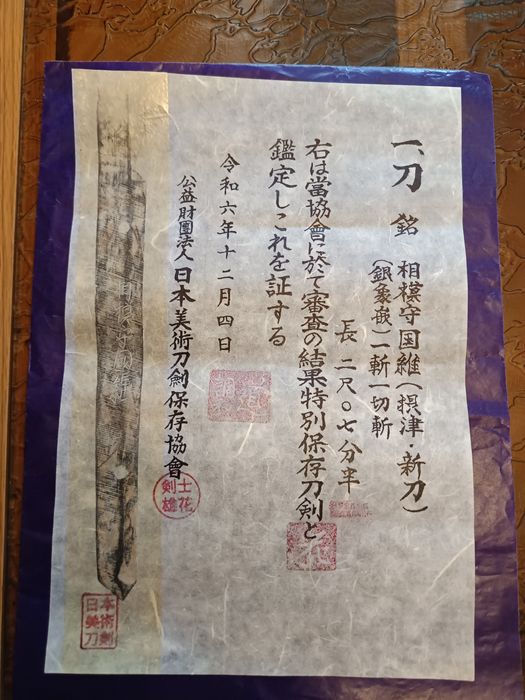 一、刀 銘 相模守国維(摂津・新刀)
(銀象嵌)一斬一切斬
長 二尺〇七分半
右は當協會に於て審査の結果特別保存刀劍と
鑑定しこれを証する
令和六年十二月四日
公益財團法人 日本美術刀劍保存協會
日本美術刀劍